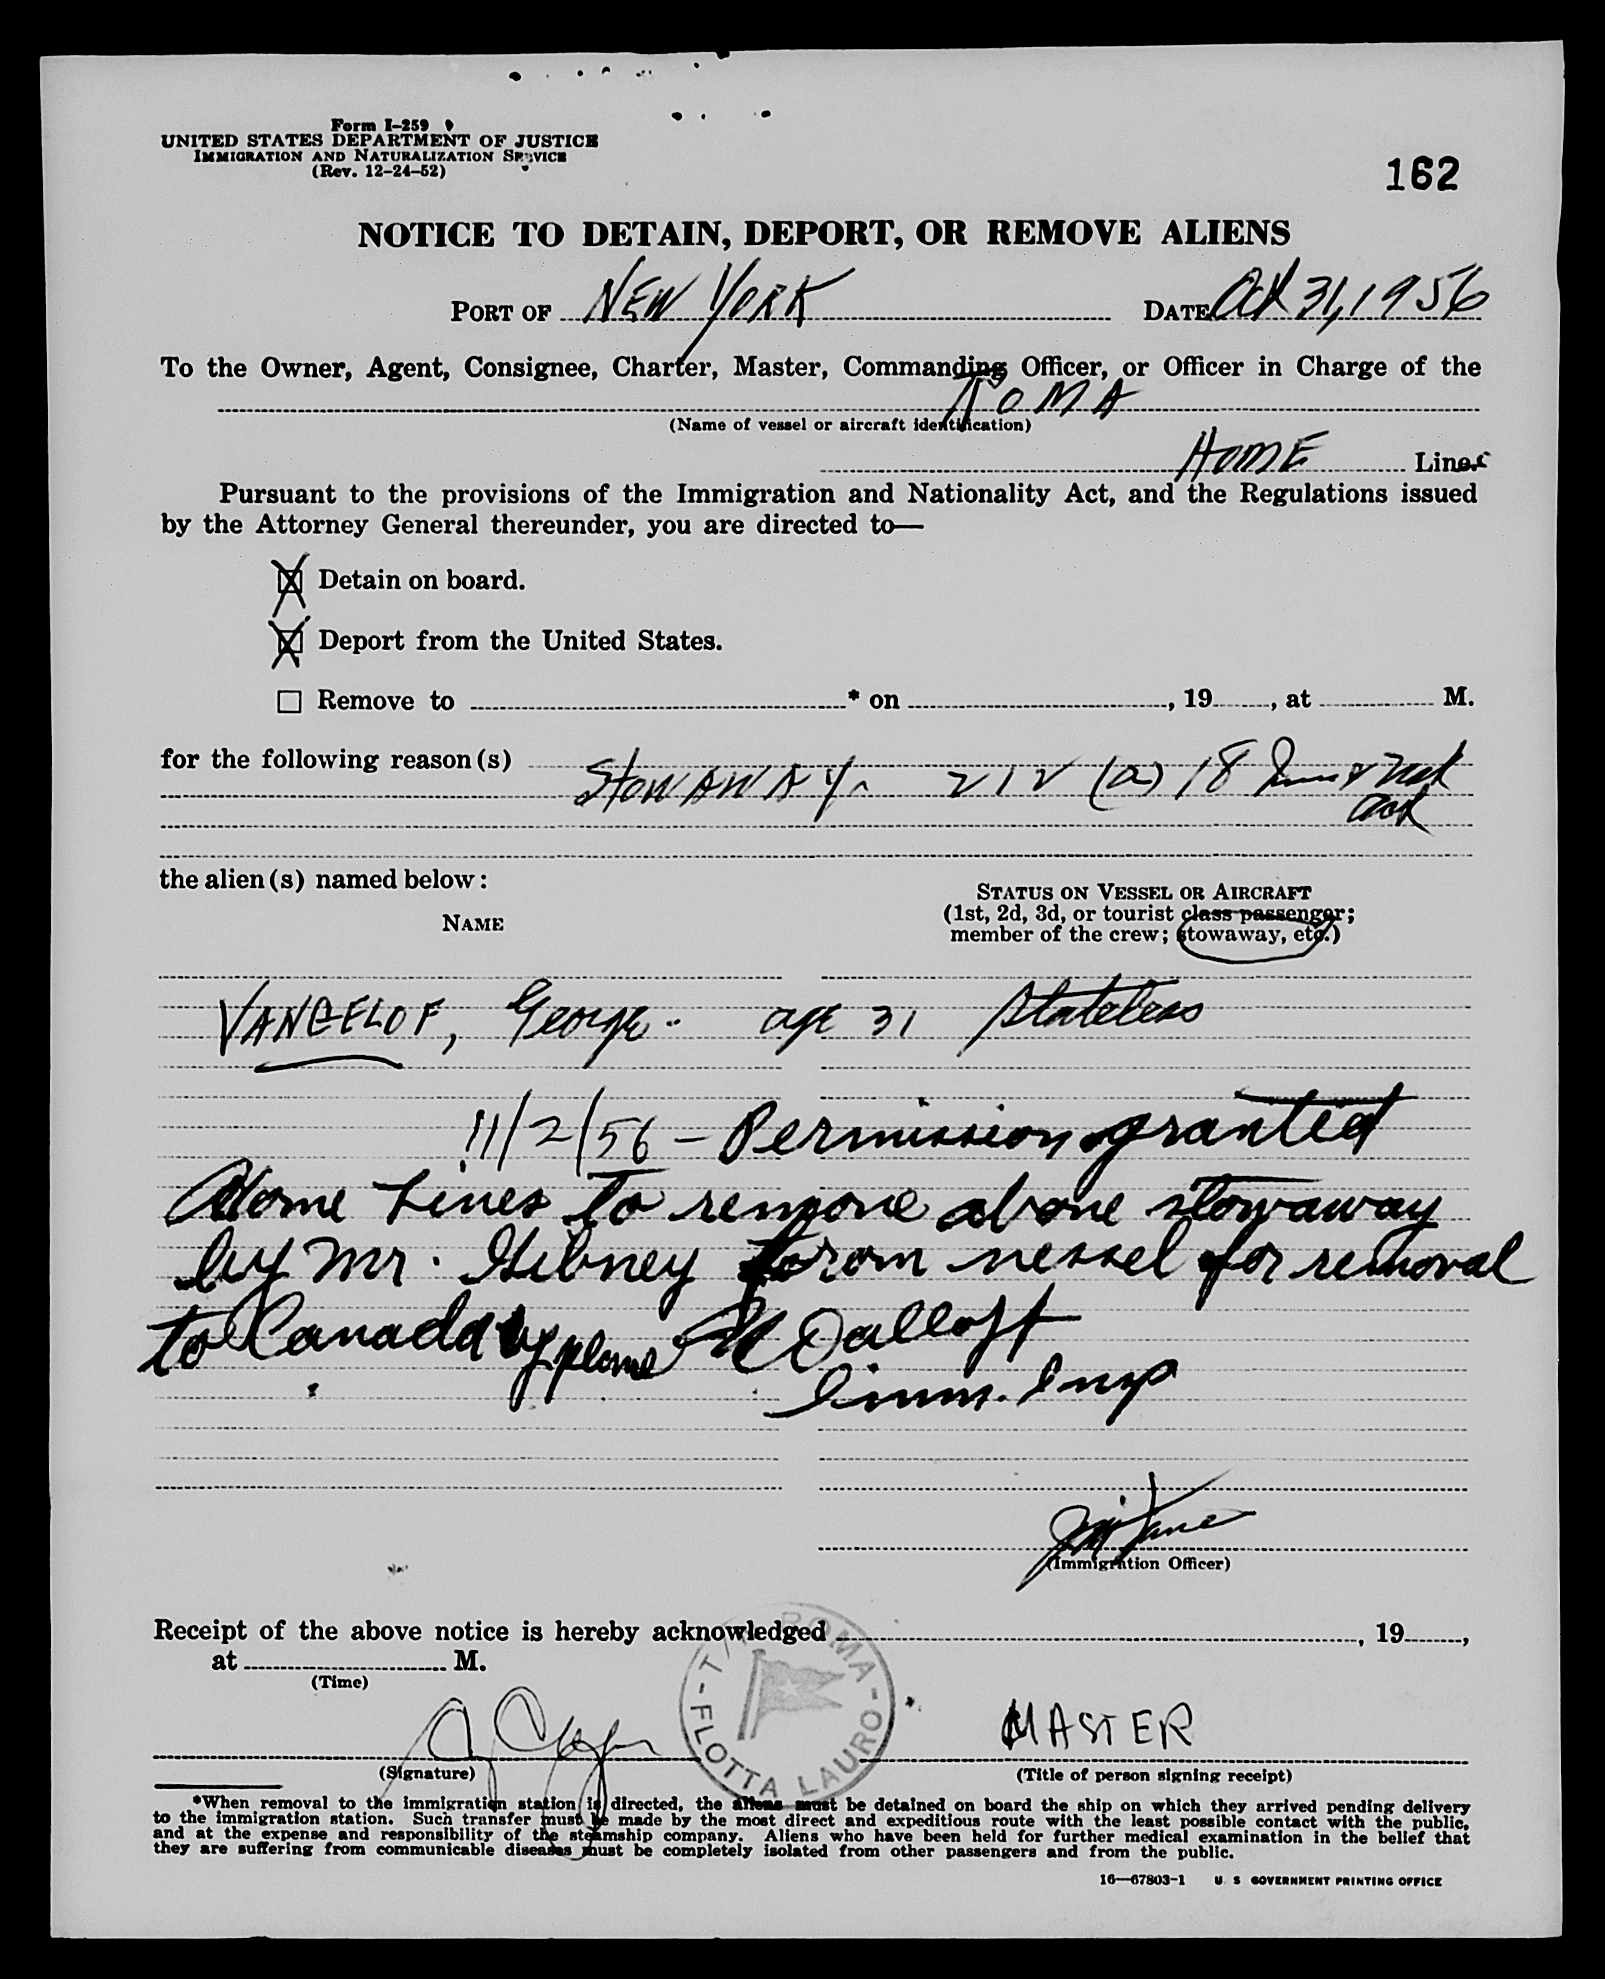 Form I-259
UNITED STATES DEPARTMENT OF JUSTICE
IMMIGRATION AND NATURALIZATION SERVICE
(Rev. 12-24-52)
162
NOTICE TO DETAIN, DEPORT, OR REMOVE ALIENS
PORT OF NEW YORK DATE Oct 31, 1956
To the Owner, Agent, Consignee, Charter, Master, Commanding Officer, or Officer in Charge of the
ROMA
(Name of vessel or aircraft identification)
HOME Lines
Pursuant to the provisions of the Immigration and Nationality Act, and the Regulations issued
by the Attorney General thereunder, you are directed to—
☒ Detain on board.
☒ Deport from the United States.
☐ Remove to * on , 19 , at M.
for the following reason(s)
STOWAWAY 212 (a) 18 Imm & Nat
Act
the alien(s) named below:
STATUS ON VESSEL OR AIRCRAFT
(1st, 2d, 3d, or tourist class passenger;
NAME
member of the crew; stowaway, etc.)
VANGELOF, George - age 31 Stateless
11/2/56 - Permission granted
Home Lines to remove above stowaway
by Mr. Gibney from vessel for removal
to Canada by plane
Imm. Insp
(Immigration Officer)
Receipt of the above notice is hereby acknowledged , 19 ,
at M.
(Time)
ROMA - FLOTTA LAURO -
MASTER
(Signature)
(Title of person signing receipt)
*When removal to the immigration station is directed, the aliens must be detained on board the ship on which they arrived pending delivery
to the immigration station. Such transfer must be made by the most direct and expeditious route with the least possible contact with the public,
and at the expense and responsibility of the steamship company. Aliens who have been held for further medical examination in the belief that
they are suffering from communicable diseases must be completely isolated from other passengers and from the public.
16—67803-1 U. S. GOVERNMENT PRINTING OFFICE